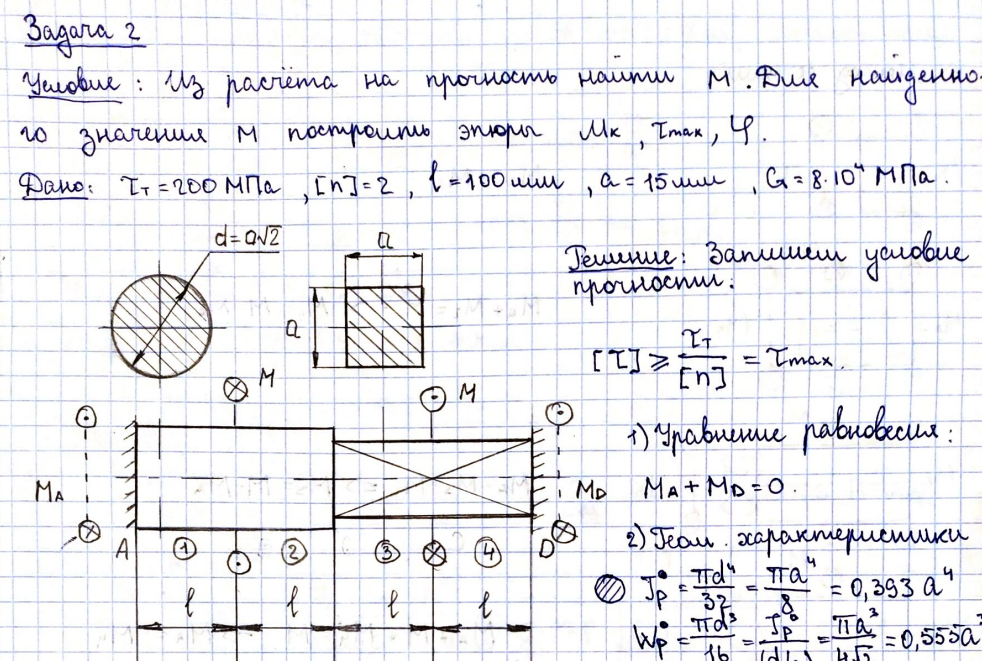 Задача 2
Условие: Из расчёта на прочность найти М. Для найденно-
го значения М построить эпюры Мк, τmax, φ.
Дано: τт=200 МПа, [n]=2, l=100мм, a=15мм, G=8·10⁴ МПа.
d=a√2
a
a
Решение: Запишем условие
прочности:
[τ] ⩾ τт/[n] = τmax.
M
M
1) Уравнение равновесия:
MA
MD
MA + MD = 0.
A
D
1 2 3 4
2) Геом. характеристики
Jp° = πd⁴/32 = πa⁴/8 = 0,393 a⁴
l l l l
Wp° = πd³/16 = Jp°/(d/2) = πa³/4√2 = 0,555a³